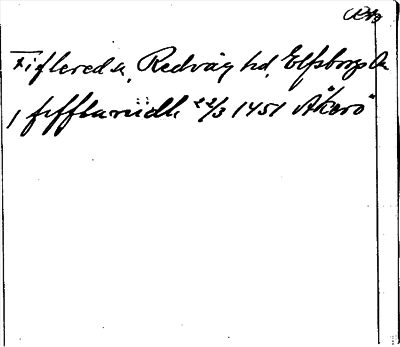 Fiflered sn, Redväg hd, Elfsborgs län
i fifflaruidh 22/3 1451 "Åkerö"